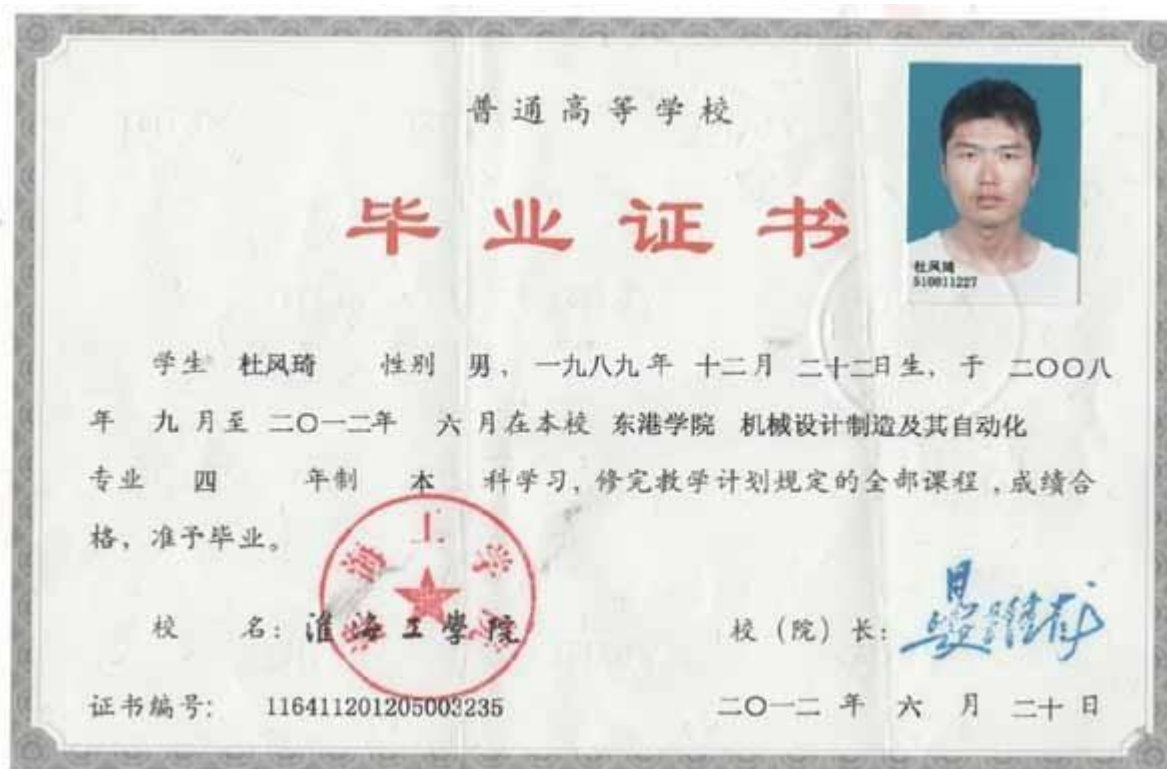 普通高等学校
毕业证书
杜风琦
510811227
学生 杜风琦 性别 男，一九八九年 十二月 二十二日生，于 二〇〇八
年 九 月至 二〇一二年 六 月在本校 东港学院 机械设计制造及其自动化
专业 四 年制 本 科学习，修完教学计划规定的全部课程，成绩合
格，准予毕业。
校 名：淮海工學院
淮海工学院
校（院）长：
证书编号： 116411201205003235
二〇一二 年 六 月 二十 日